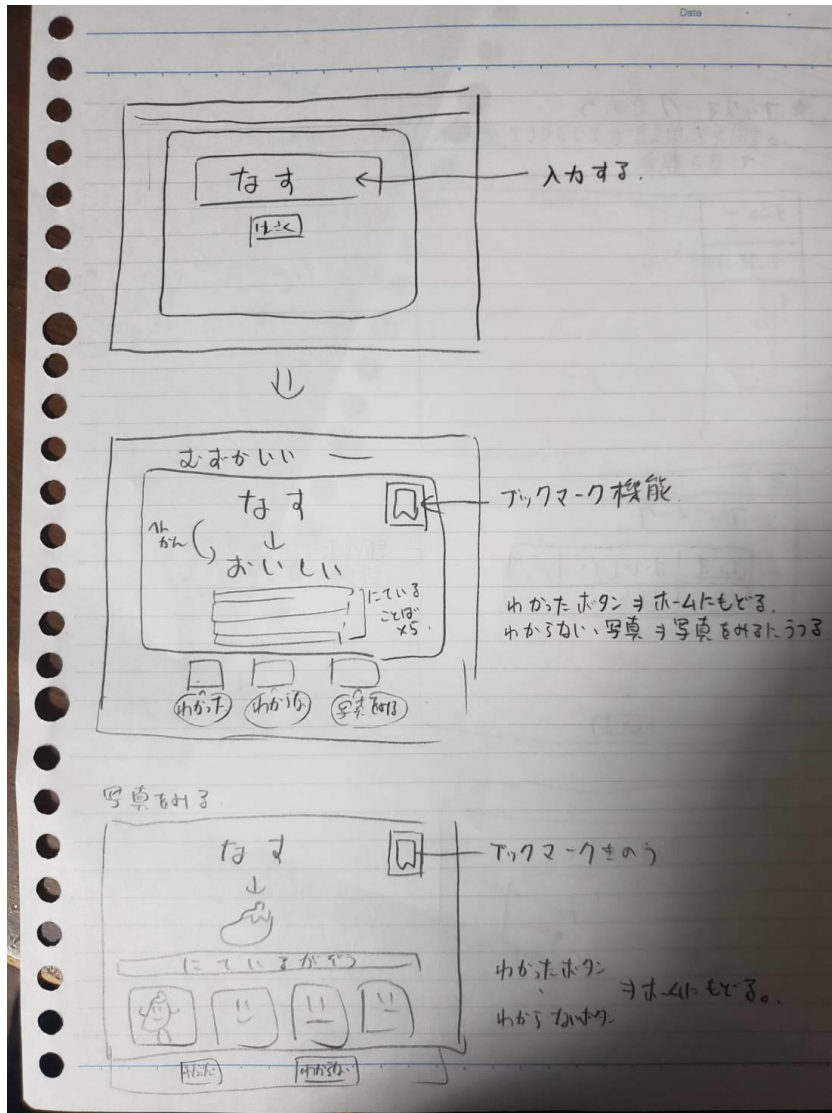 Date
なす
入力する.
けんさく
むずかしい
なす
ブックマーク機能.
へんかん
↓
おいしい
にている
ことば
×5.
わかったボタン⇒ホームにもどる.
わからない、写真⇒写真をみるにうつる
わかった
わからない
写真をみる
写真をみる
なす
ブックマークきのう
↓
にているがぞう
わかったボタン
わからないボタン
⇒ホームにもどる。
わかった
わからない